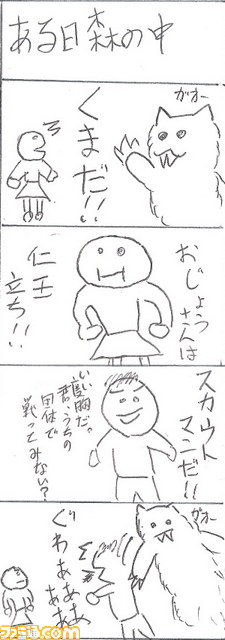 ある日森の中
ガオー
くまだ!!
おじょうさんは
仁王
立ち!!
スカウト
マンだ!!
いい度胸だ。
君、うちの
団体で
戦ってみない?
ガオー
ぐわぁぁ
ぁぁぁ
ファミ通.com